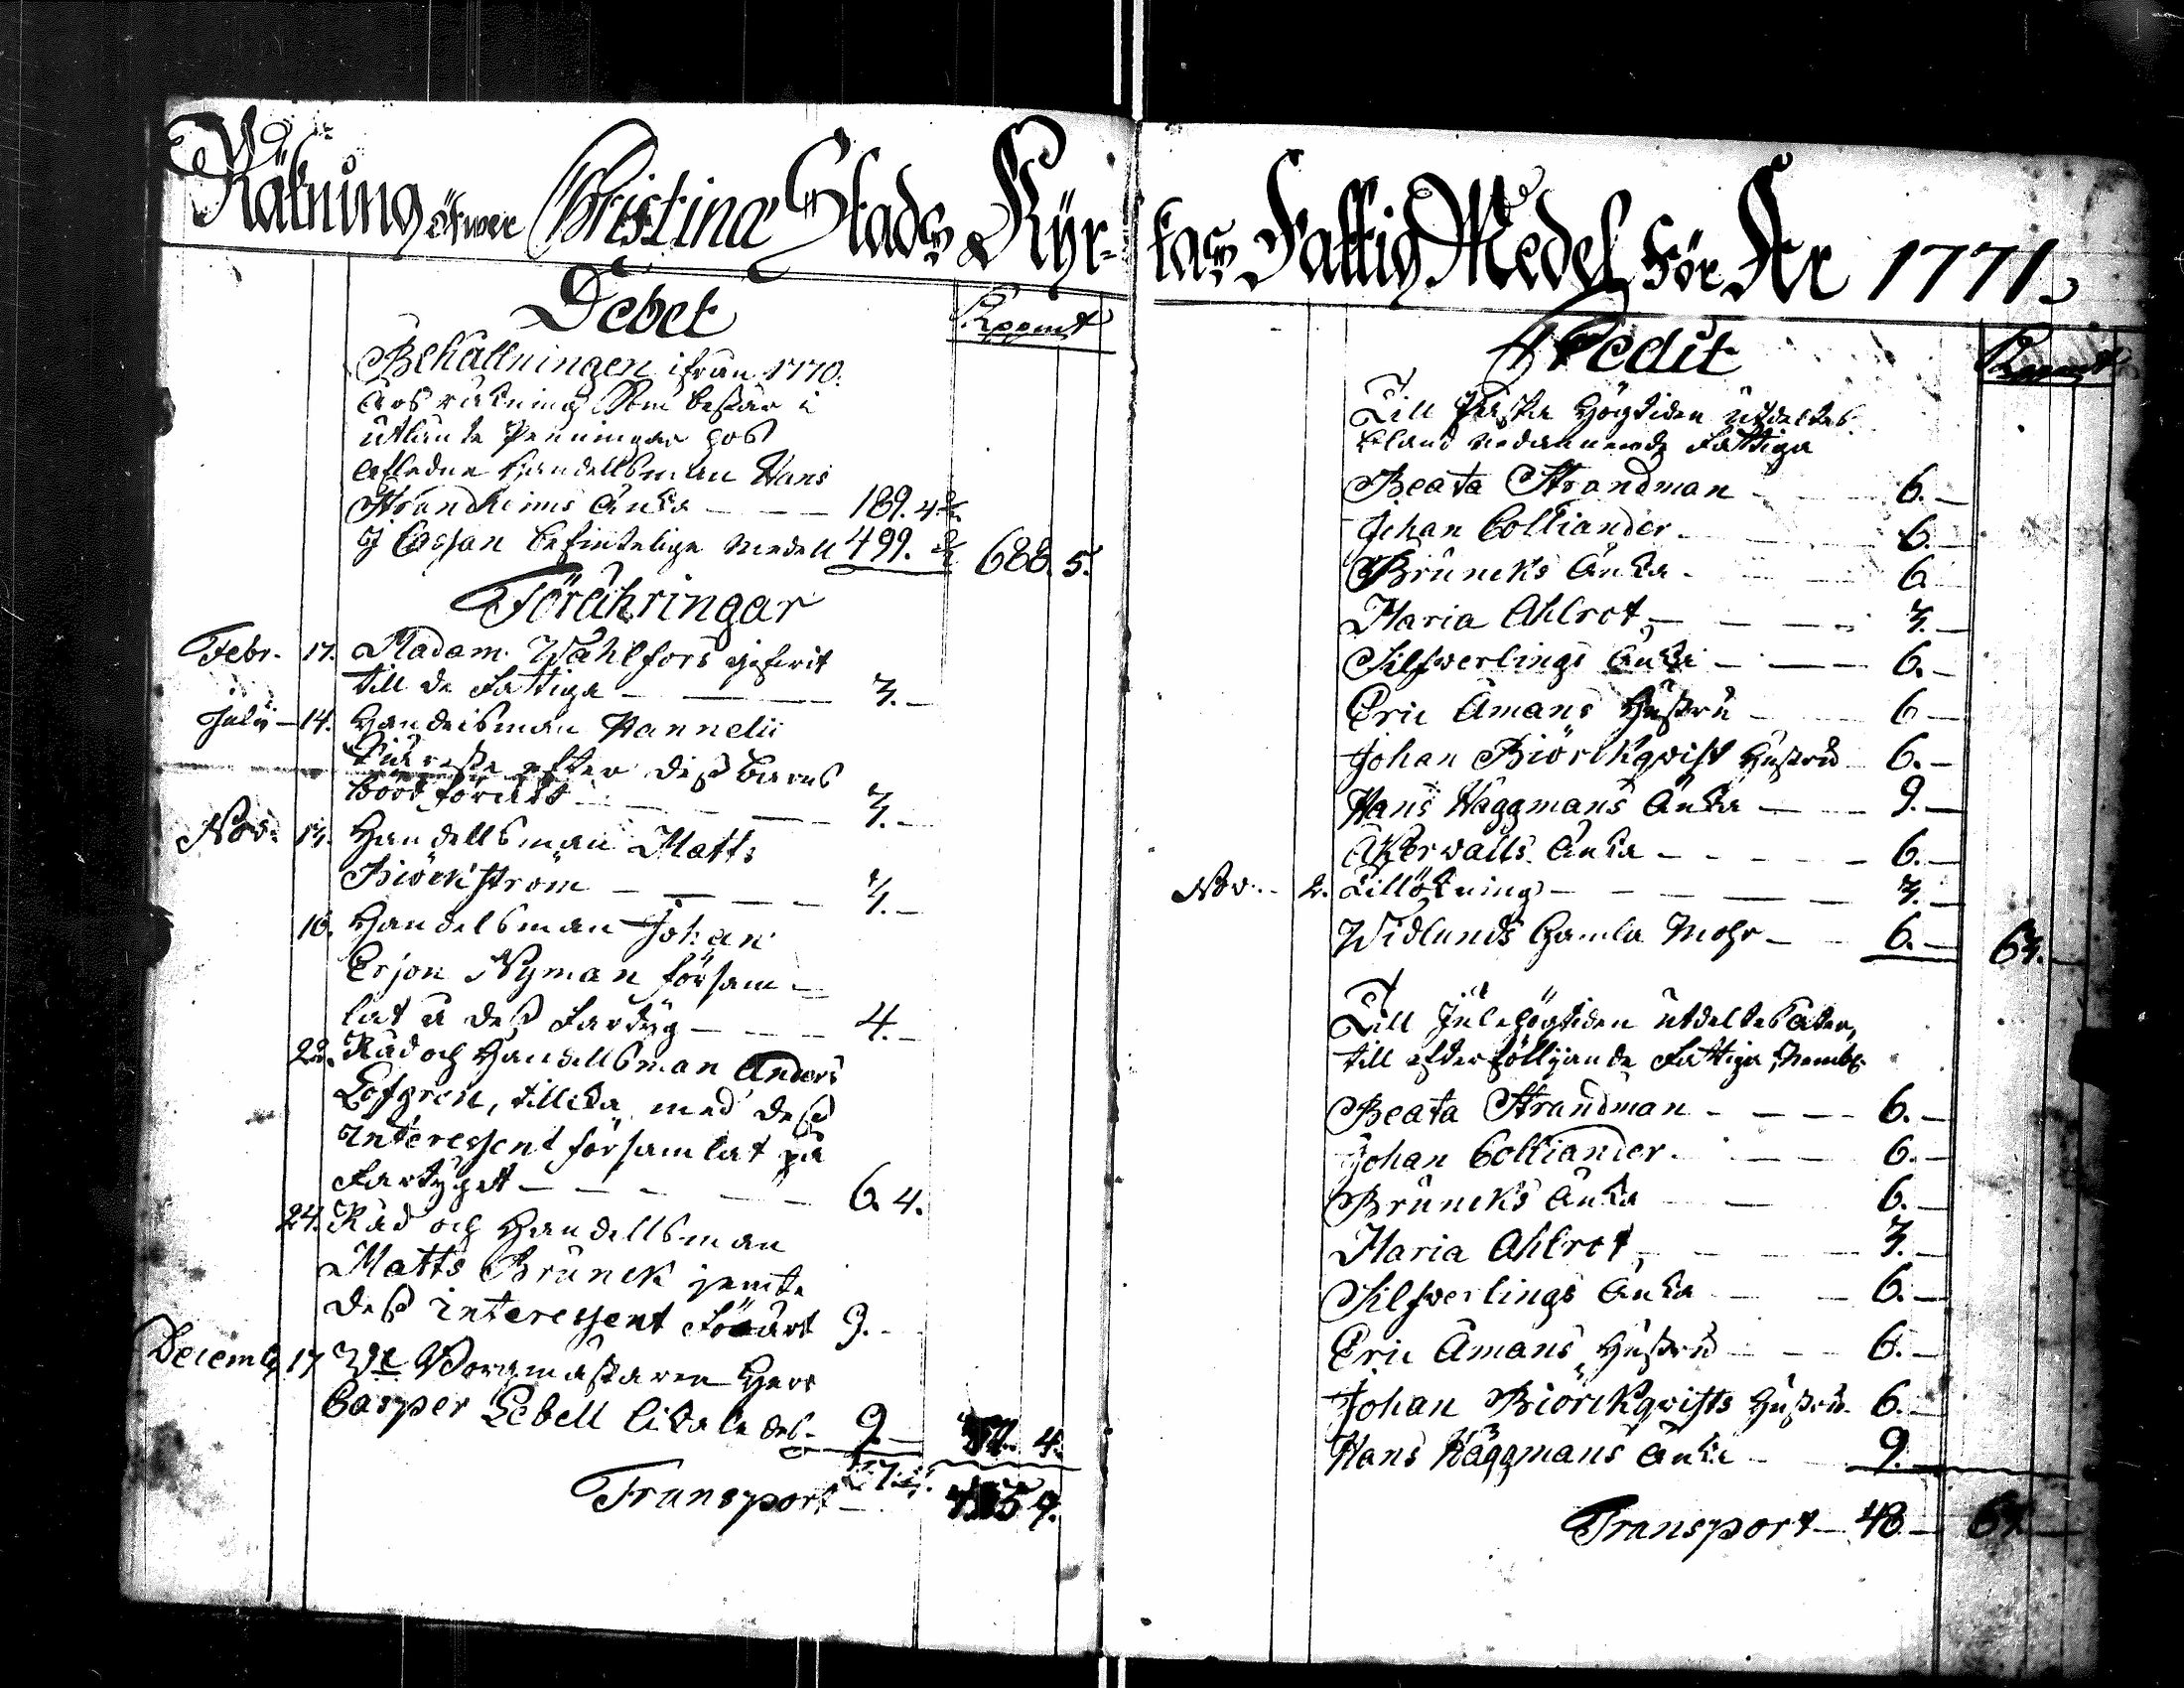 Räkning öfwer Christinæ Stads Kyr-
kas Fattig Medel För År 1771.
Debet
Kppmt
Behållningen ifrån 1770.
års räkning Som består i
utlånte Penningar hos
afledne Handellsman Hans
Strandheims Änka — — — 189. 4
I Cassan befintelige medell 499. 688. 5.
Föräkringar
Febr. 17. Madam Wahlfors gifwit
till de Fattiga — — — 3. —
Julii — 14. Handelsman Hannelii
efter dess barns
3. —
Nov. 13. Handellsman Matts
Biörkström — — — — 3. —
16. Handelsman Johan
Ersson Nyman försam-
lat å dess Fartyg — — — 4. —
22. Råd och Handellsman Anders
Löfgren, tillika med dess
Interessent församlat på
Fartyget — — — — 6. 4.
24. Råd och Handellsman
Matts Brunck jemte
dess interessent förärt 9. —
Decemb. 17 Wl. Borgmästaren Herr
Casper Lebell likaledes 9. — 4.
Transport —
Credit
Till Påska Högtiden utdeltes
bland nedannemde Fattiga
Beata Strandman — — — 6. —
Johan Colliander — — — 6. —
Bruncks Änka — — 6. —
Maria Ahlrot — — — 3. —
Silfwerlings Änka — — — 6. —
Eric Åmans Hustru — — 6. —
Johan Biörckqwist Hustru — 6. —
Hans Häggmans Änka — — 9. —
Åkerwalls Änka — — — — 6. —
Nov. 2. Tillökning — — — — — 3. —
Widlunds Gamla Mohr — — 6. — 63. —
Till Julehögtiden utdeltes åter,
till efterfölljande Fattiga, Nembl.
Beata Strandman — — — 6. —
Johan Colliander — — — 6. —
Bruncks Änka — — 6. —
Maria Ahlrot — — — 3. —
Silfwerlings Änka — — 6. —
Eric Åmans Hustru — — 6. —
Johan Biörckqwists Hustru 6. —
Hans Häggmans Änka — 9.
Transport — 48 — 63. —